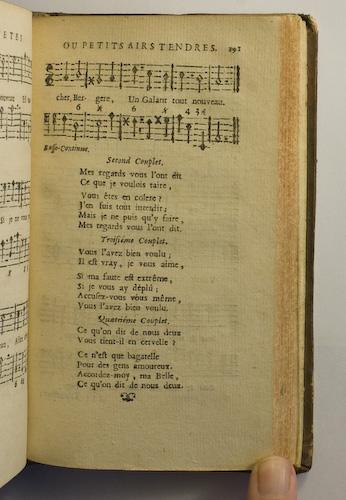 OU PETITS AIRS TENDRES. 291
cher, Ber- gere, Un Galant tout nouveau.
6 x 6 x 4 3
Basse-Continue.
Second Couplet.
Mes regards vous l'ont dit
Ce que je voulois taire,
Vous êtes en colere?
J'en suis tout interdit;
Mais je ne puis qu'y faire,
Mes regards vous l'ont dit.
Troisiéme Couplet.
Vous l'avez bien voulu;
Il est vray, je vous aime,
Si ma faute est extrême,
Si je vous ay déplû;
Accusez-vous vous même,
Vous l'avez bien voulu.
Quatriéme Couplet.
Ce qu'on dit de nous deux
Vous tient-il en cervelle?
Ce n'est que bagatelle
Pour des gens amoureux.
Accordez-moy, ma Belle,
Ce qu'on dit de nous deux.